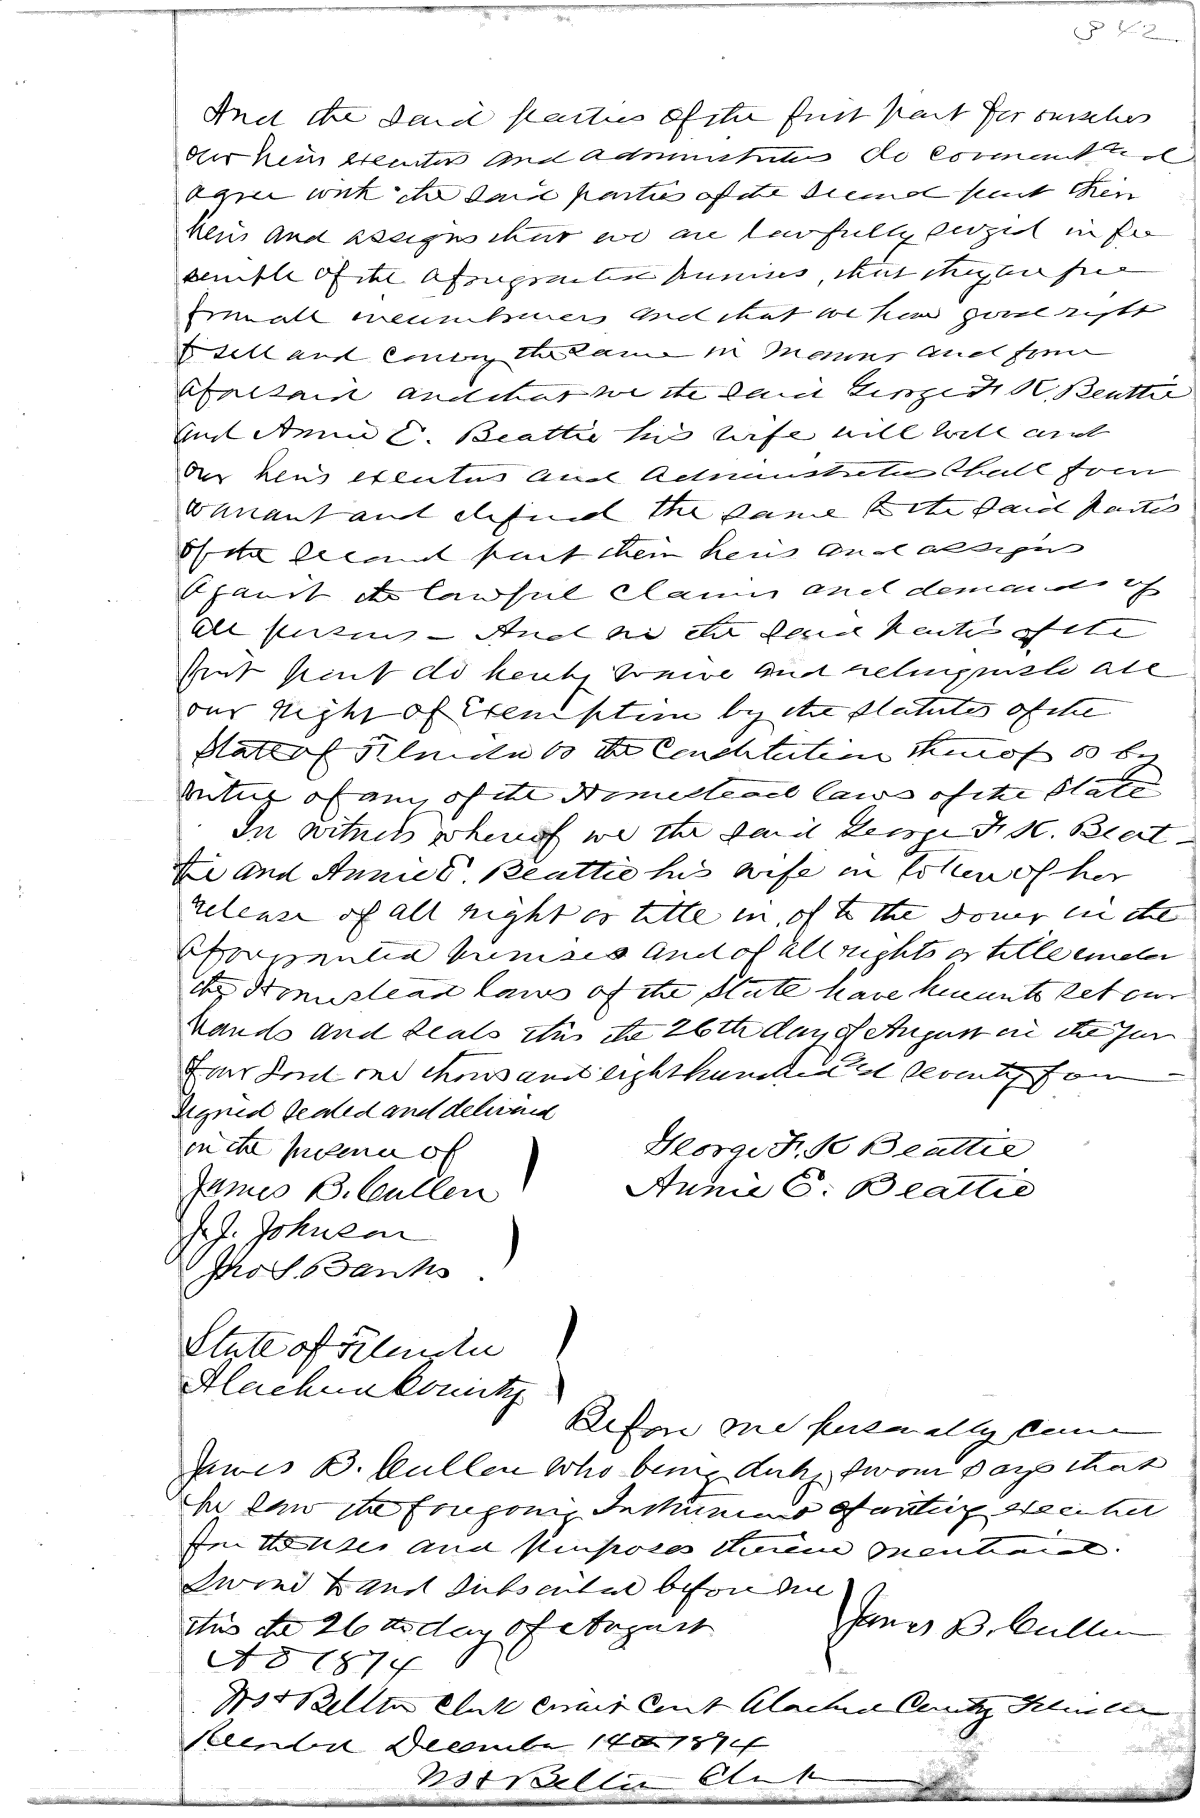 342
And the said parties of the first part for ourselves
our heirs executors and administrators do covenant and
agree with the said parties of the second part their
heirs and assigns that we are lawfully seized in fee
simple of the aforegranted premises, that they are free
from all incumbrances and that we have good right
to sell and convey the same in manner and form
aforesaid and that we the said George F. K. Beattie
and Annie E. Beattie his wife will will and
our heirs executors and administrators shall forever
warrant and defend the same to the said parties
of the second part their heirs and assigns
against the lawful claims and demands of
all persons - And we the said parties of the
first part do hereby waive and relinquish all
our right of Exemption by the statutes of the
State of Florida or the Constitution thereof or by
virtue of any of the Homestead laws of the State
In witness whereof we the said George F. K. Beat-
tie and Annie E. Beattie his wife in token of her
release of all right or title in, of to the dower in the
aforegranted premises and of all rights or title under
the Homestead laws of the State have hereunto set our
hands and seals this the 26th day of August in the year
of our Lord one thousand eight hundred and seventy four
Signed sealed and delivered
in the presence of
George F. K Beattie
James B. Cullen
Annie E. Beattie
J. J. Johnson
Jno S. Banks
State of Florida
Alachua County
Before me personally came
James B. Cullen who being duly sworn says that
he saw the foregoing Instrument of writing executed
for the uses and purposes therein mentioned.
Sworn to and subscribed before me
this the 26th day of August
James B. Cullen
A D 1874
Clerk Circuit Court Alachua County Florida
Recorded December 14th 1874
Clerk